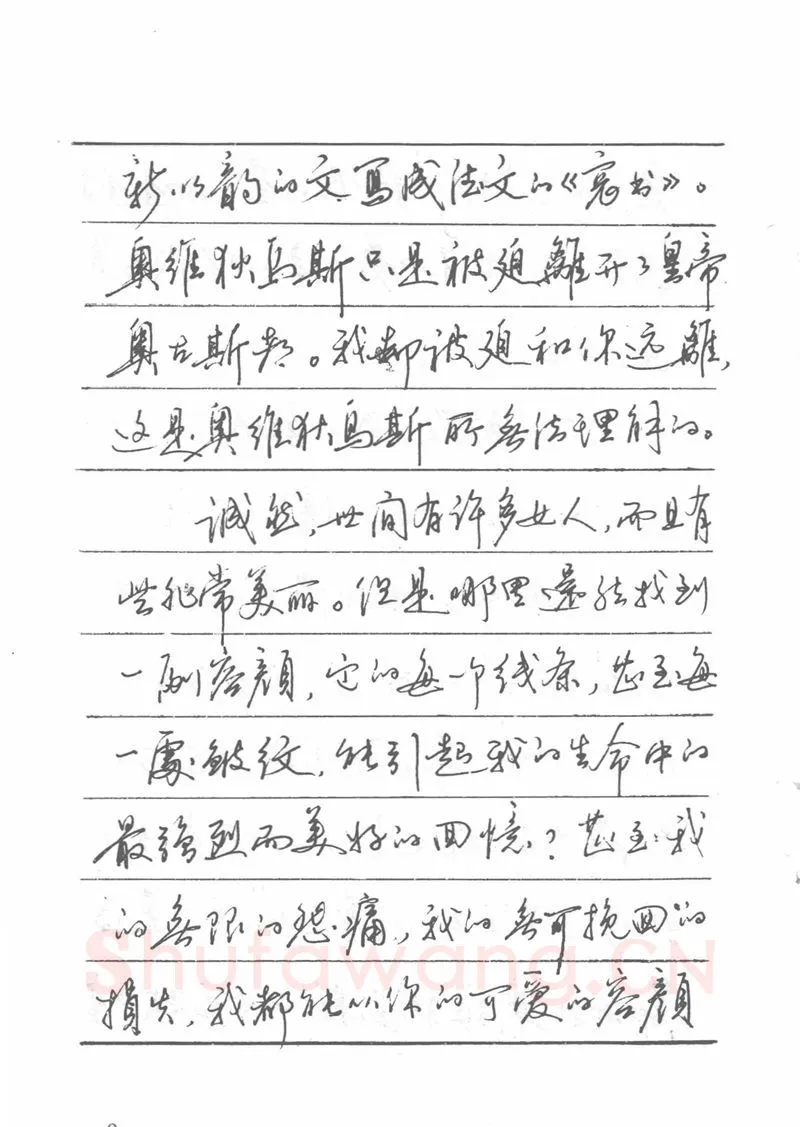 新以韵的文写成德文的《哀书》。
奥维狄乌斯只是被迫離开了皇帝
奥古斯都。我却被迫和你远離,
这是奥维狄乌斯所無法理解的。
诚然,世间有许多女人,而且有
些非常美丽。但是哪里還能找到
一副容顔,它的每一个线条,甚至每
一處皱纹,能引起我的生命中的
最强烈而美好的回憶?甚至我
的無限的悲痛,我的無可挽回的
損失,我都能从你的可爱的容顔
Shufawang.CN